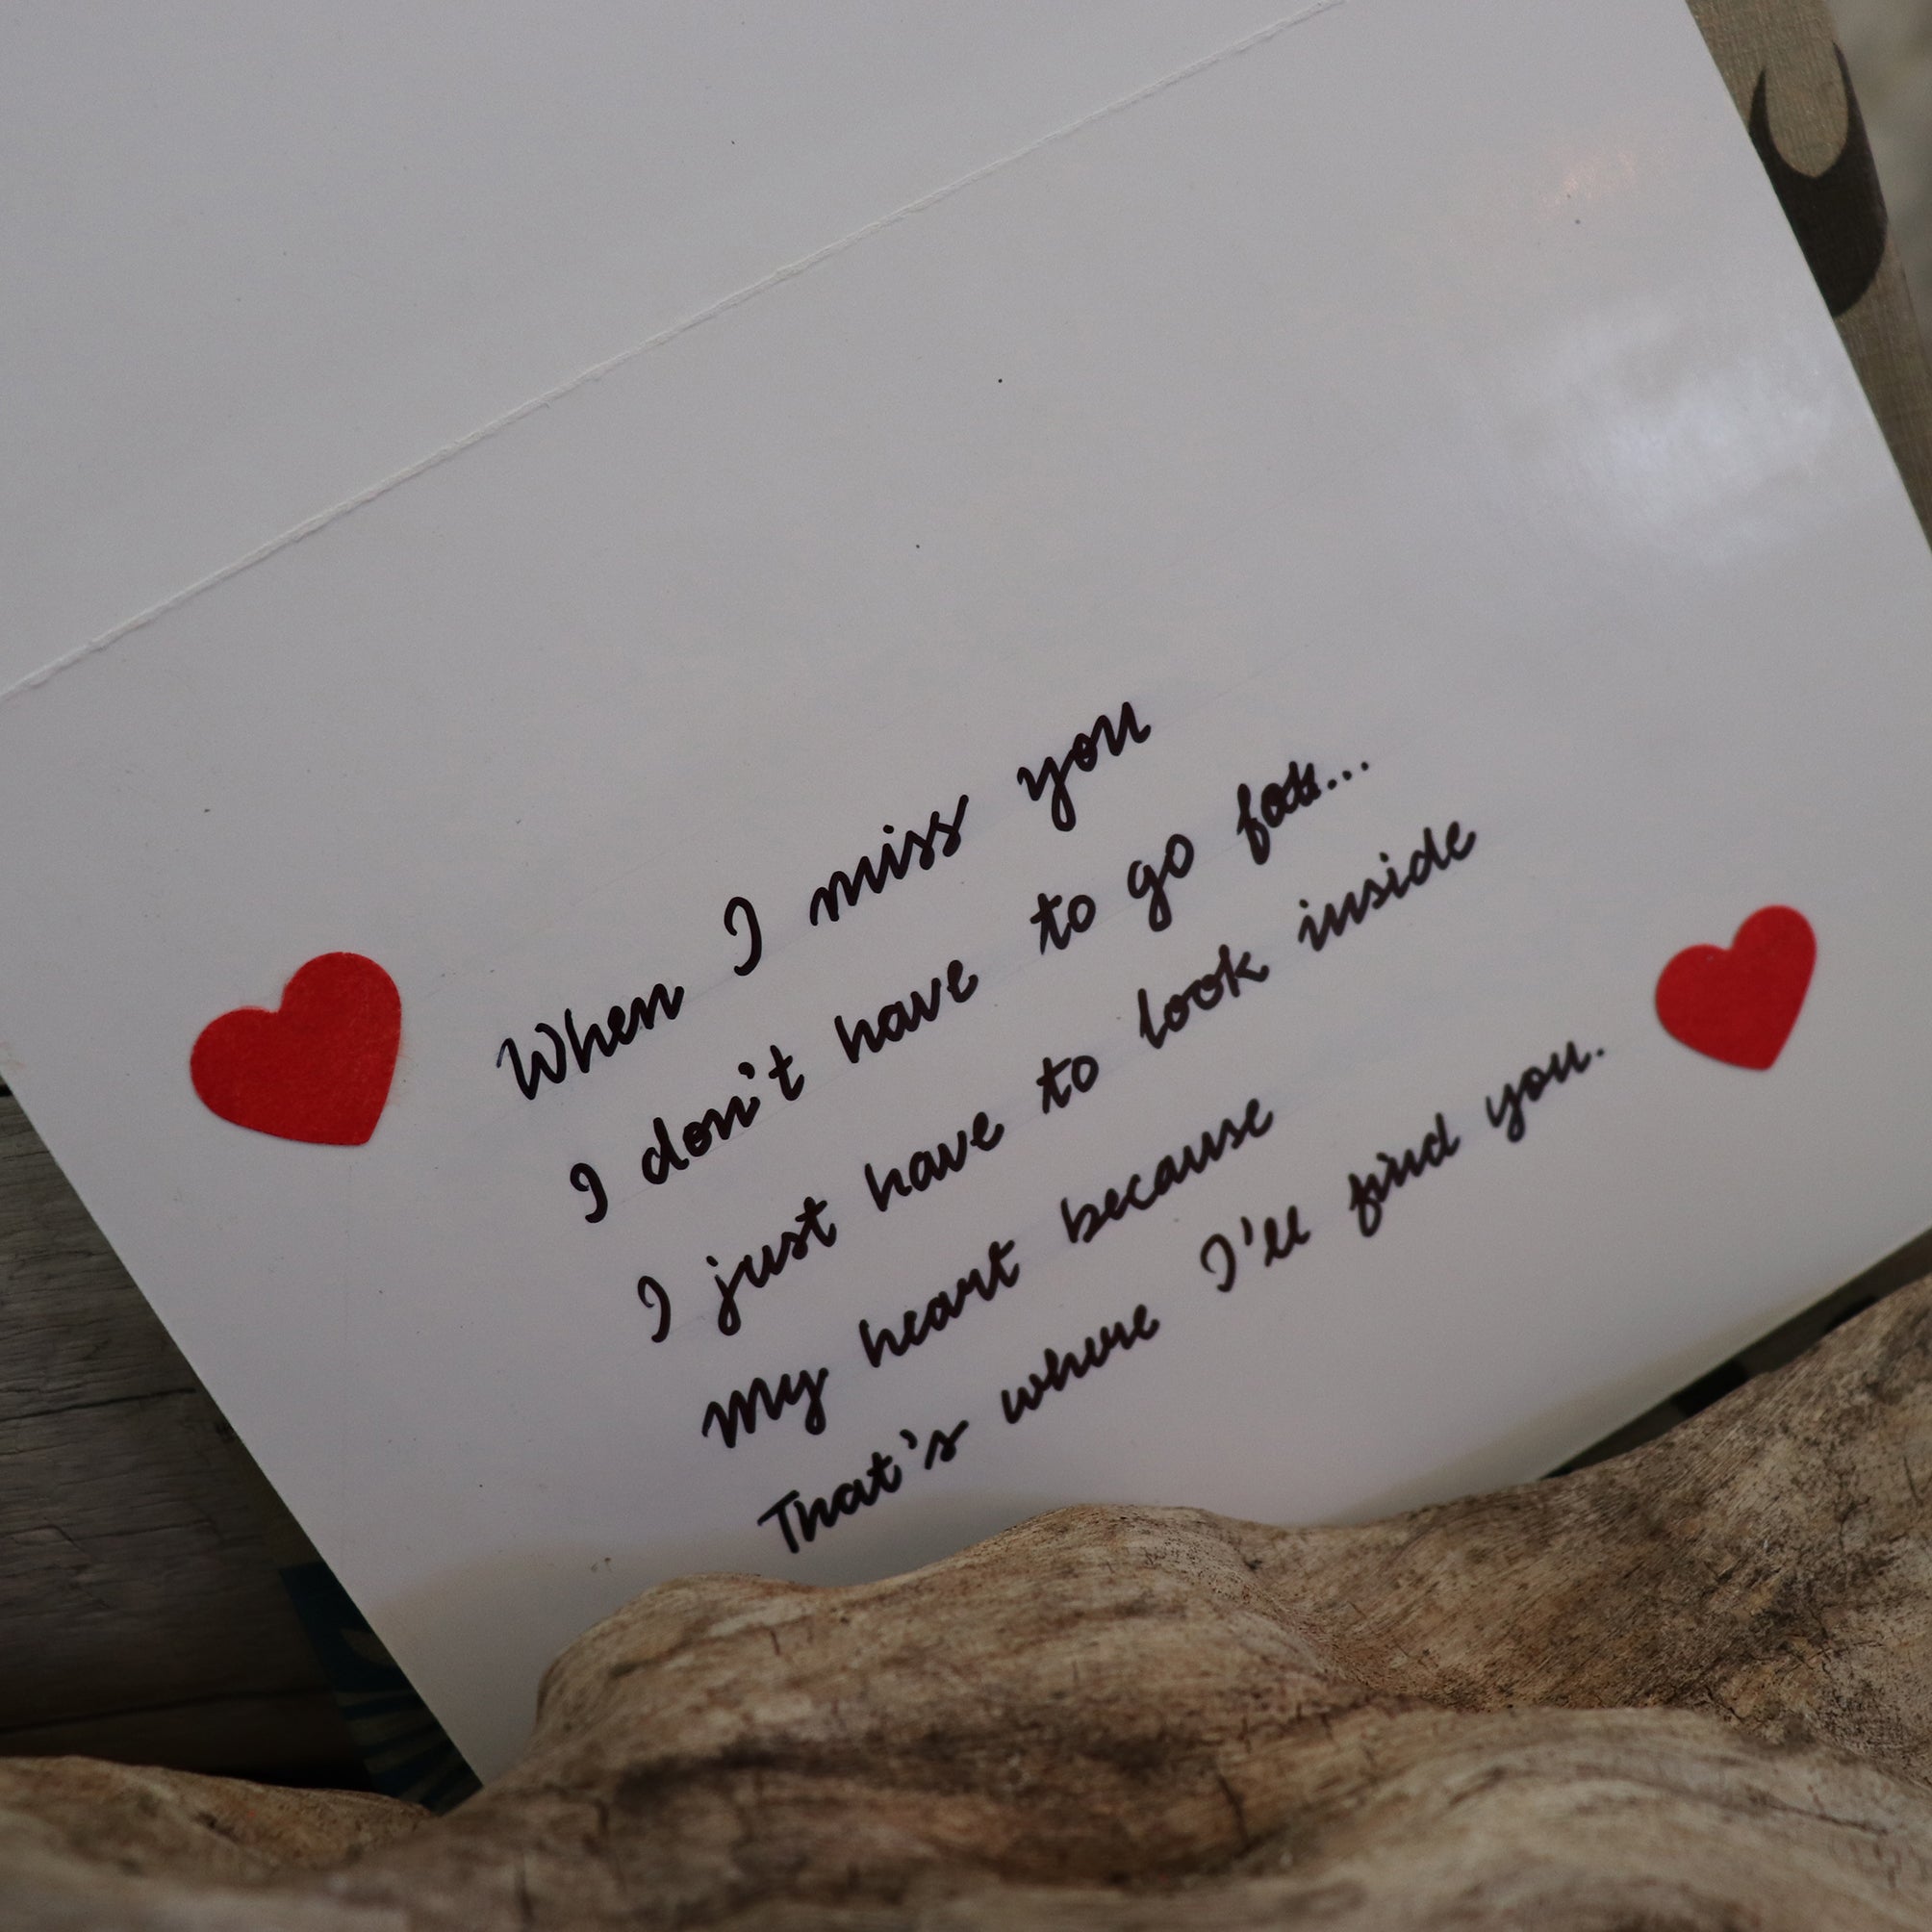 When I miss you
I don't have to go far...
I just have to look inside
My heart because
That's where I'll find you.